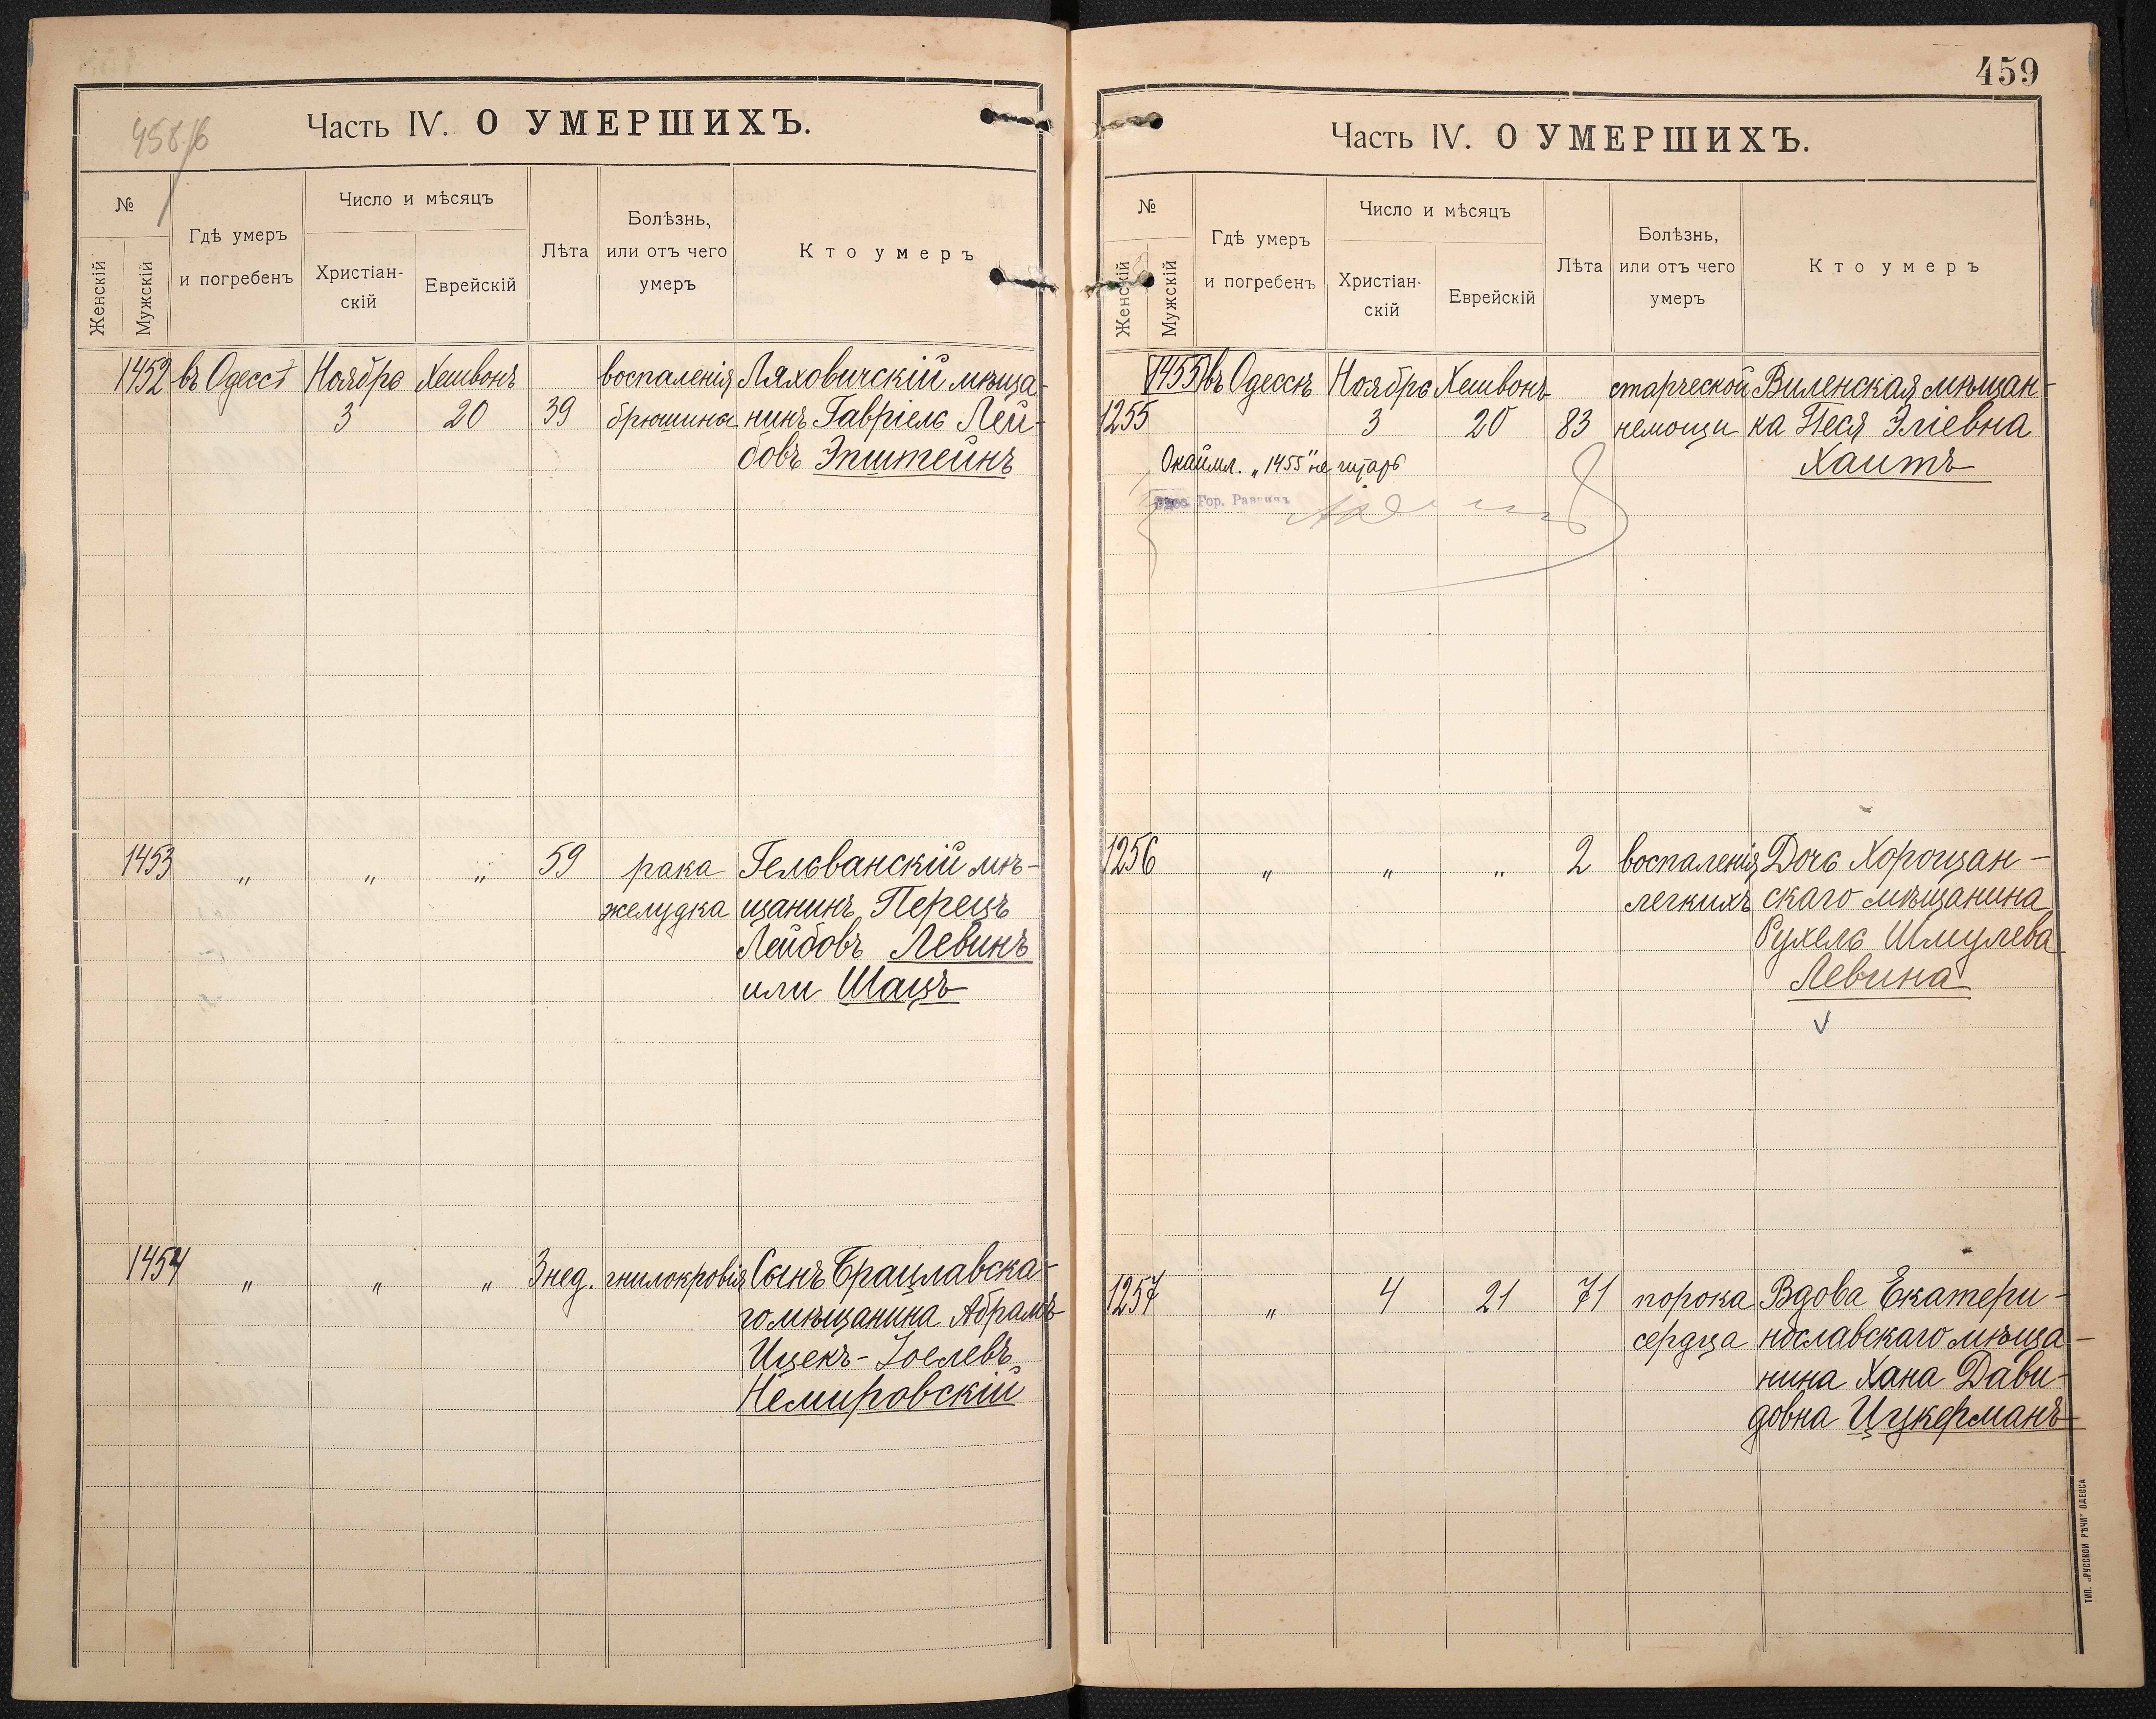 458/б
Часть IV. О УМЕРШИХЪ.
№
Женскій
Мужскій
Гдѣ умеръ
и погребенъ
Число и мѣсяцъ
Христіан-
скій
Еврейскій
Лѣта
Болѣзнь,
или отъ чего
умеръ
Кто умеръ
1452 въ Одессѣ Ноябрь Хешвонъ воспаленія Ляховичскій мѣща-
3 20 39 брюшины нинъ Гавріель Лей-
бовъ Эпштейнъ
1453 „ „ „ 59 рака Гельванскій мѣ-
желудка щанинъ Перецъ
Лейбовъ Левинъ
или Шацъ
1454 „ „ „ 3 нед. гнилокровія Сынъ Брацлавска-
го мѣщанина Абрамъ
Ицекъ-Іоелевъ
Немировскій
459
Часть IV. О УМЕРШИХЪ.
№
Женскій
Мужскій
Гдѣ умеръ
и погребенъ
Число и мѣсяцъ
Христіан-
скій
Еврейскій
Лѣта
Болѣзнь,
или отъ чего
умеръ
Кто умеръ
1455 въ Одессѣ Ноябрь Хешвонъ старческой Виленская мѣщан-
1255 3 20 83 немощи ка Песя Эліевна
Хаитъ
Окаймл. „1455" не читать
Гор. Раввинъ
1256 „ „ „ 2 воспаленія Дочь Хорощан-
легкихъ скаго мѣщанина
Рухель Шмулева
Левина
1257 „ 4 21 71 порока Вдова Екатери-
сердца нославскаго мѣща-
нина Хана Дави-
довна Цукерманъ
ТИП. „РУССКОЙ РѢЧИ" ОДЕССА